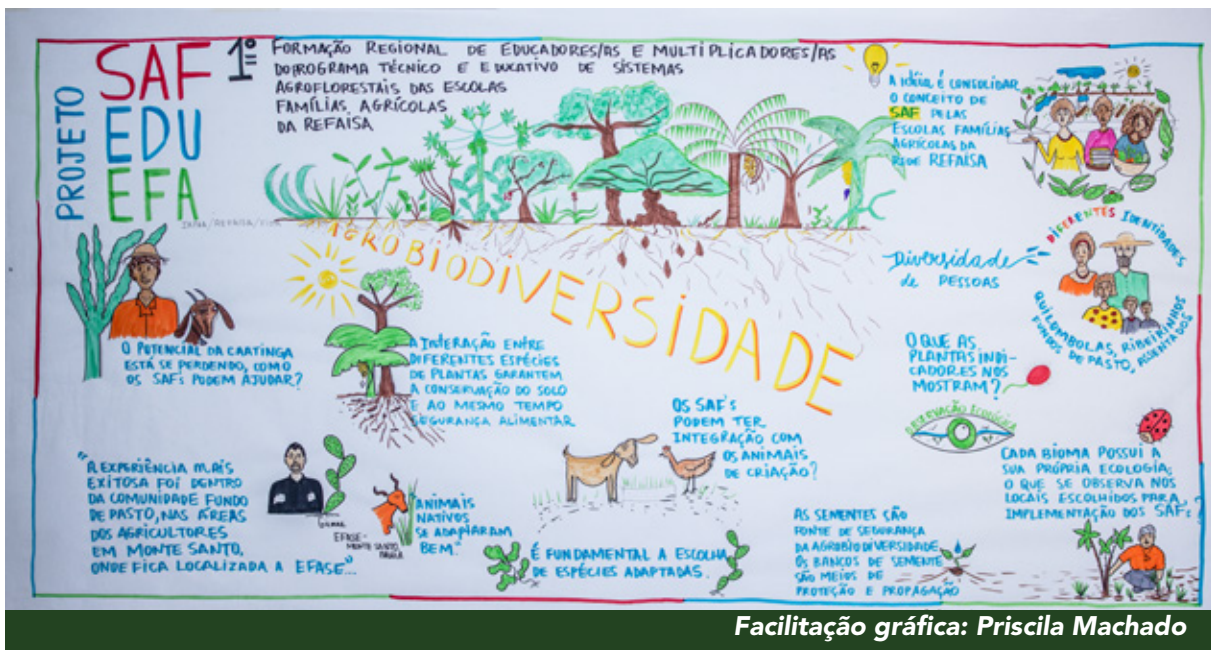 PROJETO
SAF
EDU
EFA
1º
FORMAÇÃO REGIONAL DE EDUCADORES/AS E MULTIPLICADORES/AS
DO PROGRAMA TÉCNICO E EDUCATIVO DE SISTEMAS
AGROFLORESTAIS DAS ESCOLAS
FAMÍLIAS AGRÍCOLAS
DA REFAISA
A IDÉIA É CONSOLIDAR
O CONCEITO DE
SAF PELAS
ESCOLAS FAMÍLIAS
AGRÍCOLAS DA
REDE REFAISA
AGROBIODIVERSIDADE
DIVERSIDADE
DE PESSOAS
DIFERENTES IDENTIDADES
QUILOMBOLAS, RIBEIRINHOS
FUNDOS DE PASTO, ASSENTADOS
O POTENCIAL DA CAATINGA
ESTÁ SE PERDENDO, COMO
OS SAFs PODEM AJUDAR?
A INTERAÇÃO ENTRE
DIFERENTES ESPÉCIES
DE PLANTAS GARANTEM
A CONSERVAÇÃO DO SOLO
E AO MESMO TEMPO
SEGURANÇA ALIMENTAR
O QUE AS
PLANTAS INDI-
CADORES NOS
MOSTRAM?
OBSERVAÇÃO ECOLÓGICA
OS SAF's
PODEM TER
INTEGRAÇÃO COM
OS ANIMAIS
DE CRIAÇÃO?
CADA BIOMA POSSUI A
SUA PRÓPRIA ECOLOGIA;
O QUE SE OBSERVA NOS
LOCAIS ESCOLHIDOS PARA
IMPLEMENTAÇÃO DOS SAFs?
"A EXPERIÊNCIA MAIS
EXITOSA FOI DENTRO
DA COMUNIDADE FUNDO
DE PASTO, NAS ÁREAS
DOS AGRICULTORES
EM MONTE SANTO,
ONDE FICA LOCALIZADA A EFASE..."
EFASE-
MONTE SANTO
"ANIMAIS
NATIVOS
SE ADAPTARAM
BEM."
É FUNDAMENTAL A ESCOLHA
DE ESPÉCIES ADAPTADAS.
AS SEMENTES SÃO
FONTE DE SEGURANÇA
DA AGROBIODIVERSIDADE,
OS BANCOS DE SEMENTE
SÃO MEIOS DE
PROTEÇÃO E PROPAGAÇÃO
Facilitação gráfica: Priscila Machado